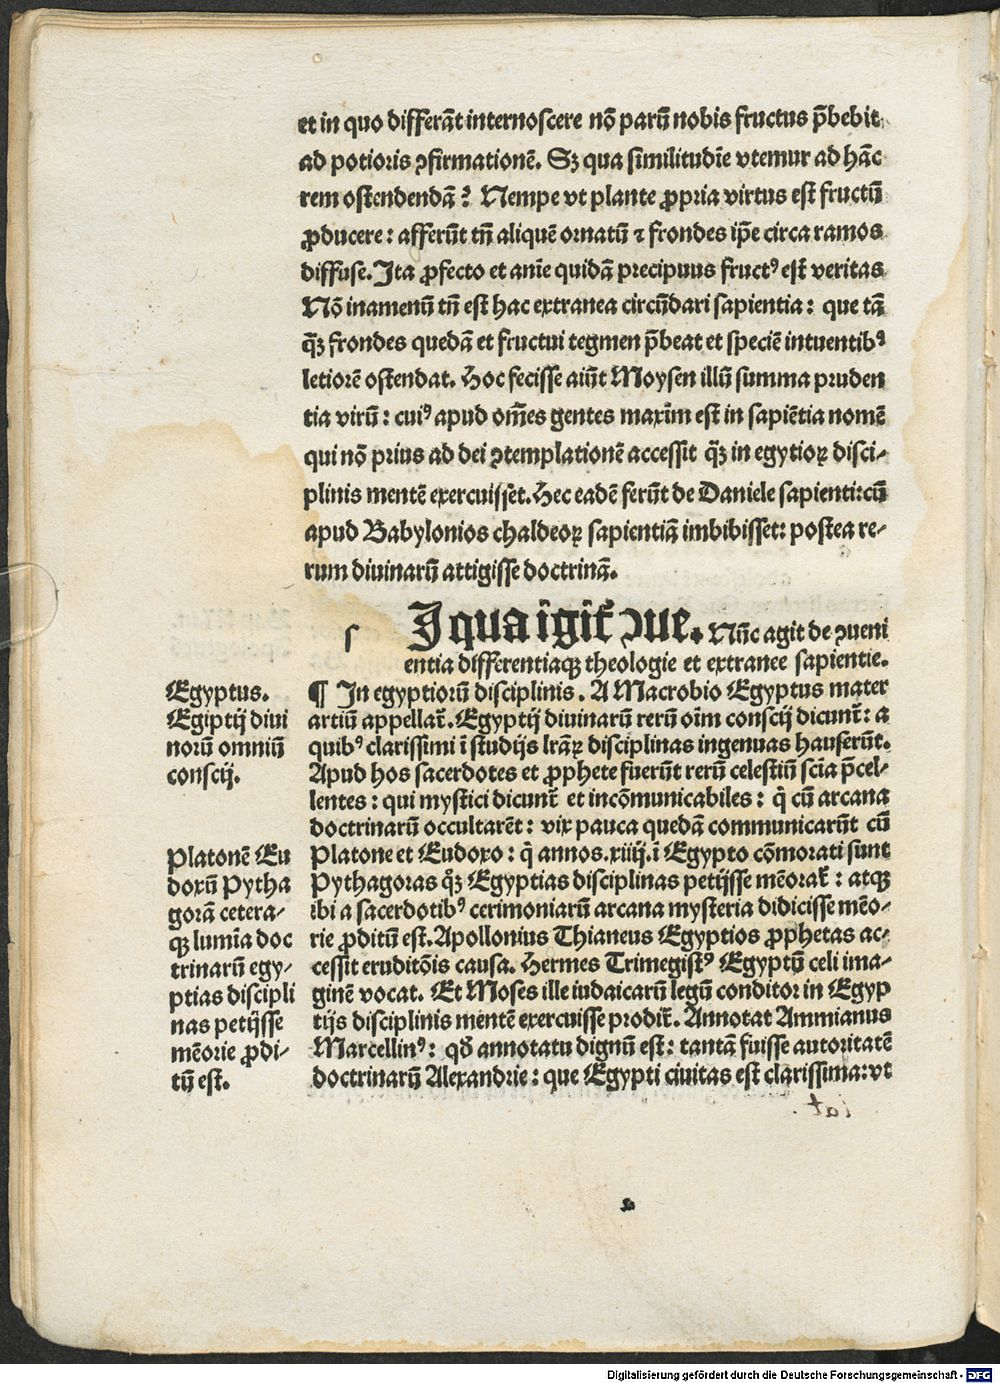 et in quo differāt internoscere nō parū nobis fructus p̄bebit
ad potioris ꝯfirmationē. Sꝫ qua similitudīe vtemur ad hāc
rem ostendendā? Nempe vt plante ꝓpria virtus est fructū
ꝓducere: afferūt tn̄ aliquē ornatū ⁊ frondes ip̄e circa ramos
diffuse. Ita ꝓfecto et anīe quidā precipuus fructꝰ est veritas
Nō inamenū tn̄ est hac extranea circūdari sapientia: que tā
q̄ꝫ frondes quedā et fructui tegmen p̄beat et speciē intuentibꝰ
letiorē ostendat. Hoc fecisse aiūt Moysen illū summa pruden
tia virū: cuiꝰ apud om̄es gentes maxīm est in sapiētia nomē
qui nō prius ad dei ꝯtemplationē accessit q̄ꝫ in egytioꝝ disci-
plinis mentē exercuisset. Hec eadē ferūt de Daniele sapienti: cū
apud Babylonios chaldeoꝝ sapientiā imbibisset: postea re-
rum diuinarū attigisse doctrinā.
s
I qua īgit̄ ꝯue. Nūc agit de ꝯueni
entia differentiaqꝫ theologie et extranee sapientie.
Egyptus.
Egiptij diui
norū omniū
conscij.
¶ In egyptiorū disciplinis. A Macrobio Egyptus mater
artiū appellat̄. Egyptij diuinarū rerū oīm conscij dicunt̄: a
quibꝰ clarissimi ī studijs lr̄aꝝ disciplinas ingenuas hauserūt.
Apud hos sacerdotes et ꝓphete fuerūt rerū celestiū scīa p̄cel-
lentes: qui mystici dicunt̄ et incōmunicabiles: q̄ cū arcana
doctrinarū occultarēt: vix pauca quedā communicarūt cū
Platonē Eu
doxū Pytha
gorā cetera-
qꝫ lumīa doc
trinarū egy-
ptias discipli
nas petijsse
mēorie ꝓdi-
tū est.
Platone et Eudoxo: q̄ annos .xiiij. ī Egypto cōmorati sunt
Pythagoras q̄ꝫ Egyptias disciplinas petijsse mēorat̄: atqꝫ
ibi a sacerdotibꝰ cerimoniarū arcana mysteria didicisse mēo-
rie ꝓditū est. Apollonius Thianeus Egyptios ꝓphetas ac-
cessit eruditōis causa. Hermes Trimegistꝰ Egyptū celi ima-
ginē vocat. Et Moses ille iudaicarū legū conditor in Egyp
tijs disciplinis mentē exercuisse prodit̄. Annotat Ammianus
Marcellinꝰ: qđ annotatu dignū est: tantā fuisse autoritatē
doctrinarū Alexandrie: que Egypti ciuitas est clarissima: vt
Digitalisierung gefördert durch die Deutsche Forschungsgemeinschaft - DFG